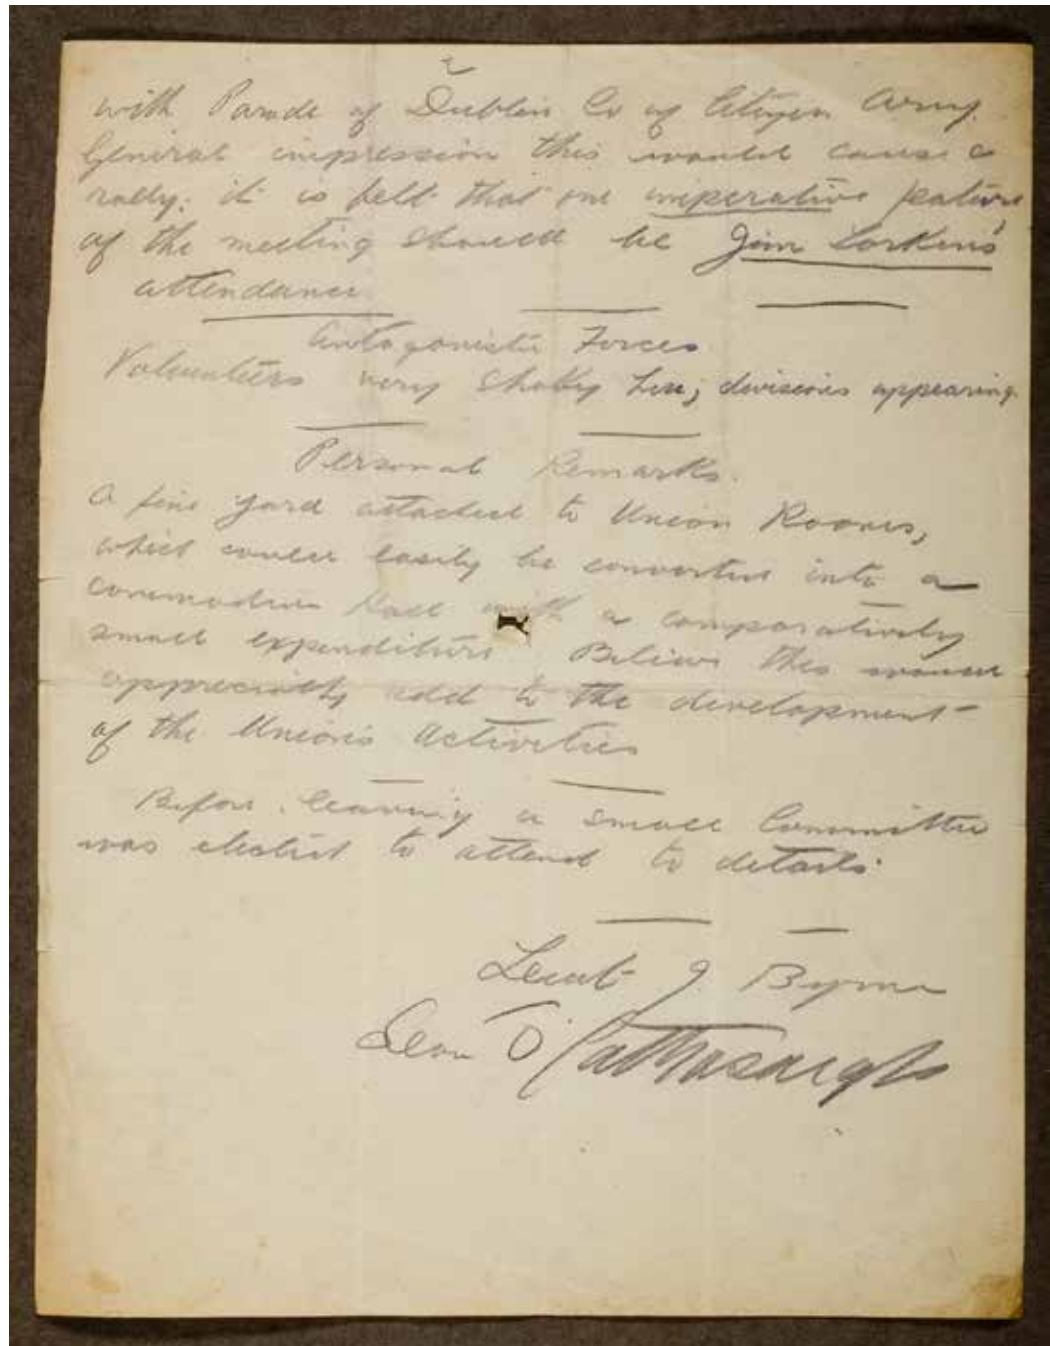 2
with Parade of Dublin Co of Citizen Army.
General impression this would cause a
rally; it is felt that one imperative feature
of the meeting should be Jim Larkin's
attendance.
Antagonistic Forces
Volunteers very shaky here; divisions appearing.
Personal Remarks.
A fine yard attached to Union Rooms,
which could easily be converted into a
commodious Hall with a comparatively
small expenditure. Believe this would
appreciably add to the development
of the Union's Activities
Before leaving a small Committee
was elected to attend to details.
Lieut J. Byrne
Sean O Cathasaigh